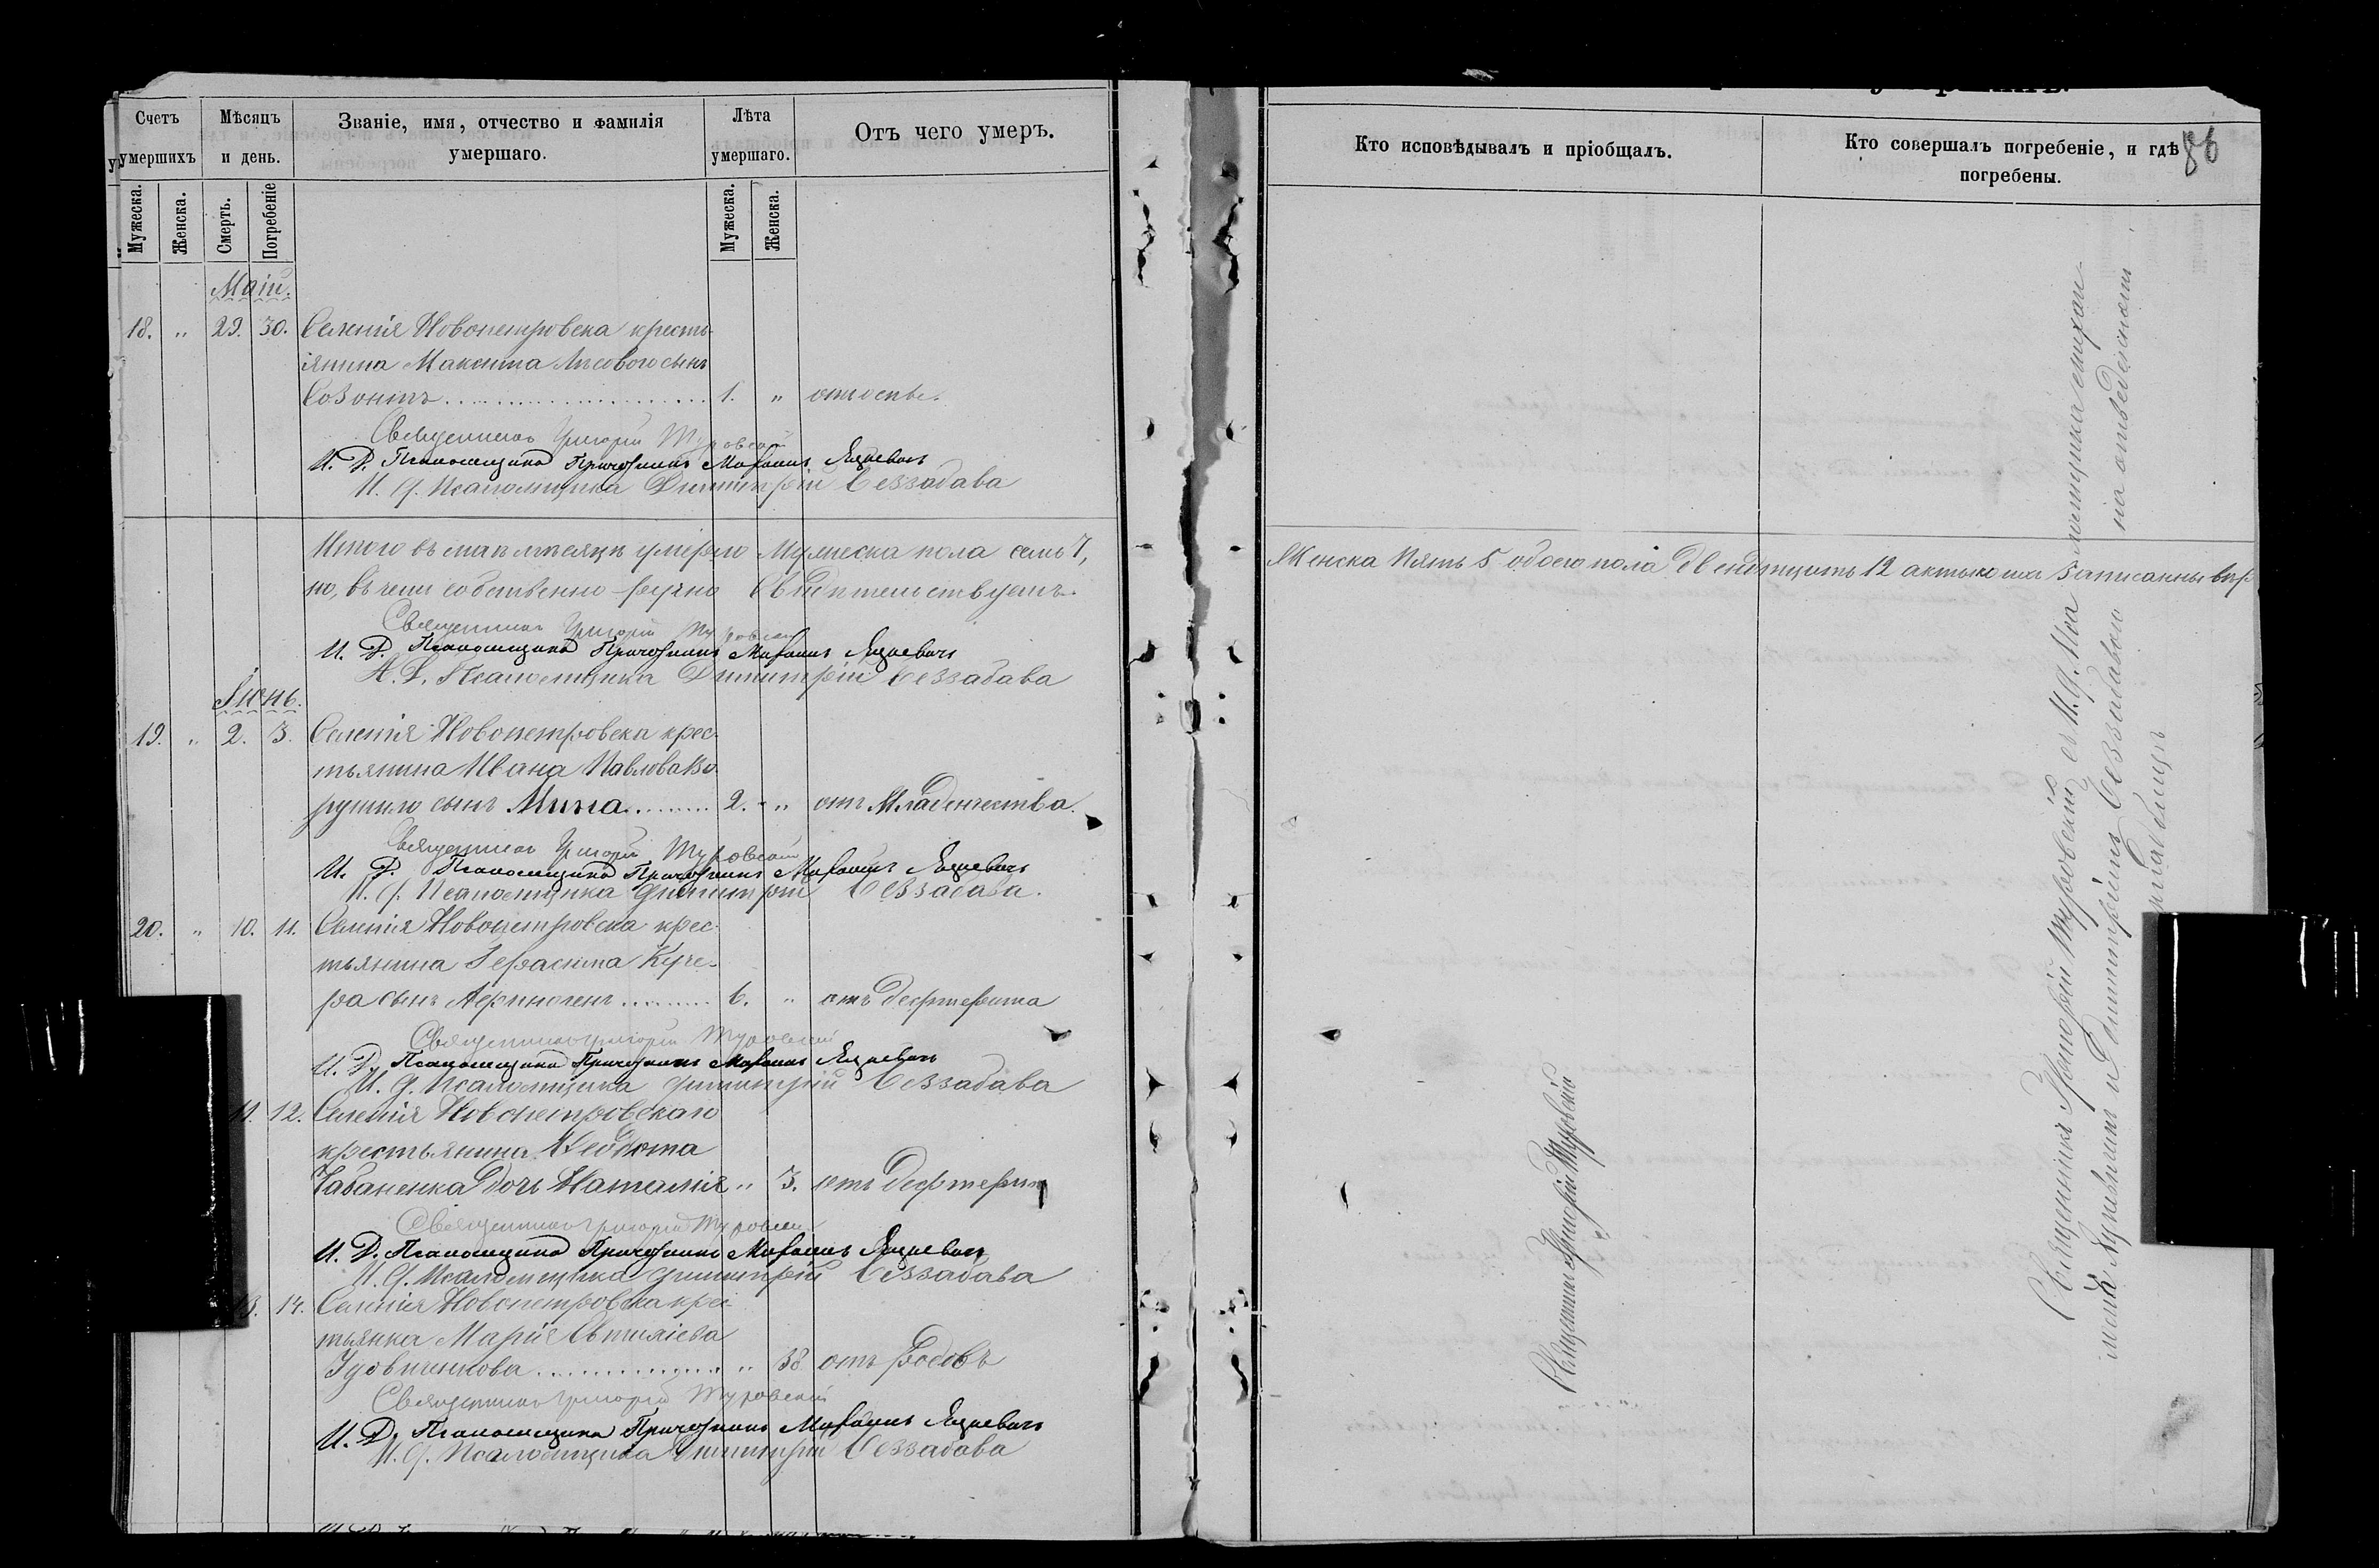 Счетъ умершихъ
Мѣсяцъ и день.
Званіе, имя, отчество и фамилія умершаго.
Лѣта умершаго.
Отъ чего умеръ.
Мужеска. Женска. Смерть. Погребеніе Мужеска. Женска.
Май.
18. „ 29. 30. Селенія Новопетровска кресть-
янина Максима Лысового сынъ
Созонтъ 1. „ отъ оспы.
Священникъ Григорій Туровскій
И. Д. Псаломщика Михаилъ Яцкевичъ
И. д. Псаломщика Димитрій Беззабава
Итого въ маѣ мѣсяцѣ умерло мужеска пола семь 7,
но, въ чемъ собственно-ручно свидѣтельствуемъ.
Священникъ Григорій Туровскій
И. Д. Псаломщика Михаилъ Яцкевичъ
И. Д. Псаломщика Димитрій Беззабава
Іюнь.
19. „ 2. 3. Селенія Новопетровска крес-
тьянина Ивана Павлова
сынъ Мина 2. „ отъ Младенчества.
Священникъ Григорій Туровскій
И. Д. Псаломщика Михаилъ Яцкевичъ
И. д. Псаломщика Димитрій Беззабава.
20. „ 10. 11. Селенія Новопетровска крес-
тьянина Герасима Куче-
ра сынъ 6. „ отъ дефтерита
Священникъ Григорій Туровскій
И. Д. Псаломщика Михаилъ Яцкевичъ
И. д. Псаломщика Димитрій Беззабава
11. 12. Селенія Новопетровскаго
крестьянина Федота
Чабаненка дочь Наталія „ 3. отъ дефтерит
Священникъ Григорій Туровскій
И. Д. Псаломщика Михаилъ Яцкевичъ
И. д. Псаломщика Димитрій Беззабава
13. 14. Селенія Новопетровска крес-
тьянка Марія
Удовиченкова „ 38 отъ родовъ
Священникъ Григорій Туровскій
И. Д. Псаломщика Михаилъ Яцкевичъ
И. д. Псаломщика Димитрій Беззабава
Кто исповѣдывалъ и пріобщалъ.
Кто совершалъ погребеніе, и гдѣ погребены.
86
Женска пять 5 обоего пола двенадцать 12 записанны
Священникъ Григорій Туровскій
Священникъ Григорій Туровскій съ И. д. Псаломщика
и Димитріемъ Беззабавою на